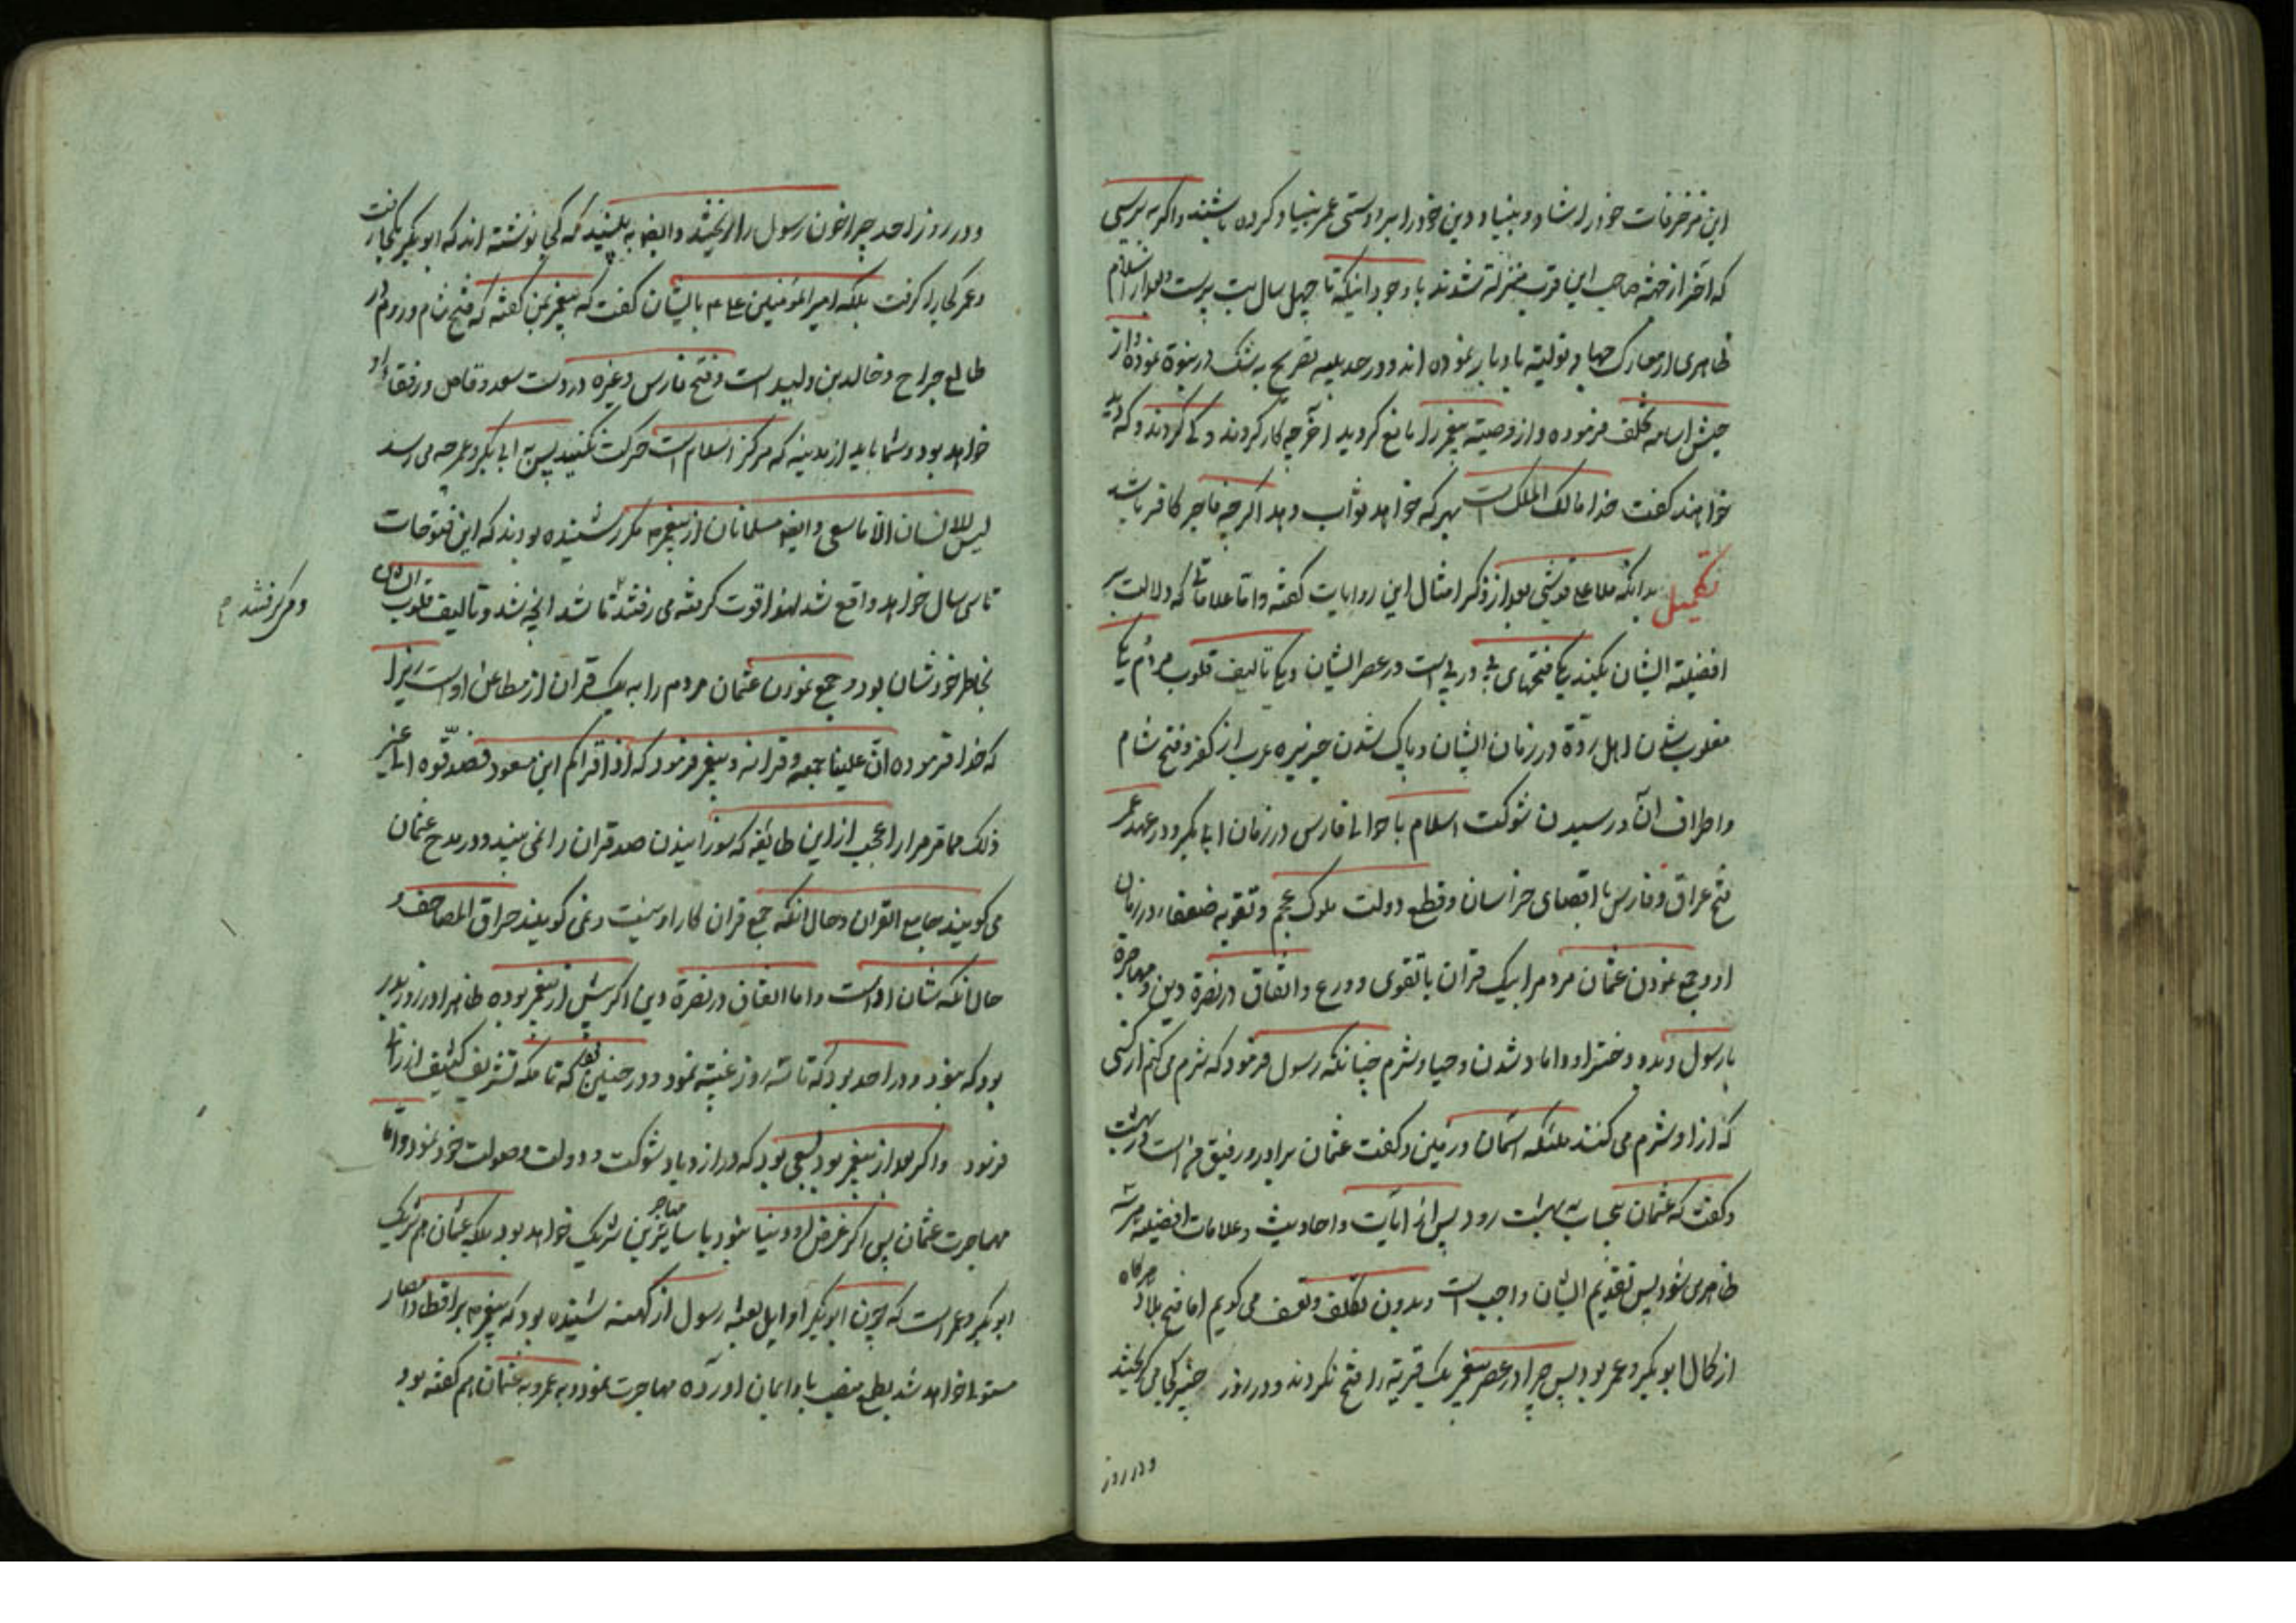 این مزخرفات خود را شاد و بنیاد دین خود را بر دوستی عمر بنیاد کرده باشند و اگر به پرسی
که آخر از چه صاحب این قرب و منزلة شدند با وجود اینکه تا چهل سال بت پرست و بعد از اسلام
ظاهری از معارک جهاد تولیته بادبار نموده اند و در حدیبیه تصریح به شک در نبوة نموده و از
جیش اسامه تخلف فرموده و از وصیته پیغمبر را مانع گردید آخر چه کار کردند و کی کردند و که دید
خواهند گفت خدا مالک الملک است بهر که خواهد ثواب دهد اگر چه فاجر کافر باشد
تکمیل بدانکه ملا علی قوشچی بعد از ذکر امثال این روایات گفته و اما علاماتی که دلالت بر
افضلیة ایشان بکند یکی فتحهای پی در پی است در عصر ایشان و یکی تالیف قلوب مردم یکی
مغلوب شدن اهل ردّة در زمان ایشان و پاک شدن جزیره عرب از کفر و فتح شام
و اطراف آن و رسیدن شوکت اسلام با حوالی فارس در زمان ابابکر و در عهد عمر
فتح عراق و فارس تا اقصای خراسان و قطع دولت ملوک عجم و تقویه ضعفاء در زمان
او و جمع نمودن عثمان مردم را بیک قران با تقوی و ورع و اتفاق در نصرة دین و مهاجرة
با رسول و دو دختر او و داماد شدن و حیا و شرم چنانکه رسول فرمود که شرم می کنم از کسی
که از او شرم می کنند ملئکه آسمان و زمین و گفت عثمان برادر و رفیق من است در بهشت
و گفت که عثمان بیحساب به بهشت رود پس از آیات و احادیث و علامات افضلیه مرتبه
ظاهر می شود پس تقدیم ایشان واجب است و بدون تکلف و تعسف می گویم اما فتح بلاد هر گاه
از کمال ابوبکر و عمر بود پس چرا در عصر پیغمبر یک قریة را فتح نکردند و در روز خیبر کجا می گریختند
و در روز
و در روز احد چرا خون رسول را ریختند و ایضا به بینید که کی نوشته اند که ابوبکر کجا رفت
و عمر کجا را گرفت بلکه امیر المؤمنین علیه م بایشان گفت که پیغمبر بمن گفته که فتح شام و روم در
طالع جراح و خالد بن ولید است و فتح فارس و غیره در دست سعد وقاص و رفقاء او
خواهد بود و شما باید از مدینه که مرکز اسلام است حرکت نکنید پس به ابی بکر و عمر چه می رسد
لیس للانسان الا ما سعی و ایضا مسلمانان از پیغمبر م مکرر شنیده بودند که این فتوحات
تا سی سال خواهد واقع شد لهذا قوت گرفته می رفتند تا شد آنچه شد و تالیف قلوب ایشان
و می گرفتند
بخاطر خودشان بود و جمع نمودن عثمان مردم را به یک قران از مطاعن اوست زیرا
که خدا فرموده انّ علینا جمعه و قرانه و پیغمبر فرمود که اذا اقراکم ابن مسعود فصدّقوه الی غیر
ذلک مما مر مرارا عجب از این طایفه که سوزانیدن صد قران را نمی بینید و در مدح عثمان
می گویند جامع القران و حال آنکه جمع قران کار او نیست و نمی گویند حراق المصاحف و
حال آنکه شان اوست و اما اتفاق در نصرة دین اگر پیش از پیغمبر بوده ظاهرا در روز بدر
بود که نبود و در احد بود که تا سه روز غیبته نمود و در حنین بود که تا مکه تشریف کثیف ارزانی
فرمود و اگر بعد از پیغمبر بود سعی بود که در ازدیاد شوکت و دولت و صولت خود نمود و اما
مهاجرت عثمان پس اگر غرض او دنیا نبود با سایر مهاجرین شریک خواهد بود بلکه عثمان هم شریک
ابوبکر و عمر است که چون ابوبکر اوایل بعثه رسول از کهنه شنیده بود که پیغمبر م بر اقطار و امصار
مستولی خواهد شد بطمع منصب باو ایمان آورده مهاجرت نمود و به عمر و به عثمان هم گفته بود